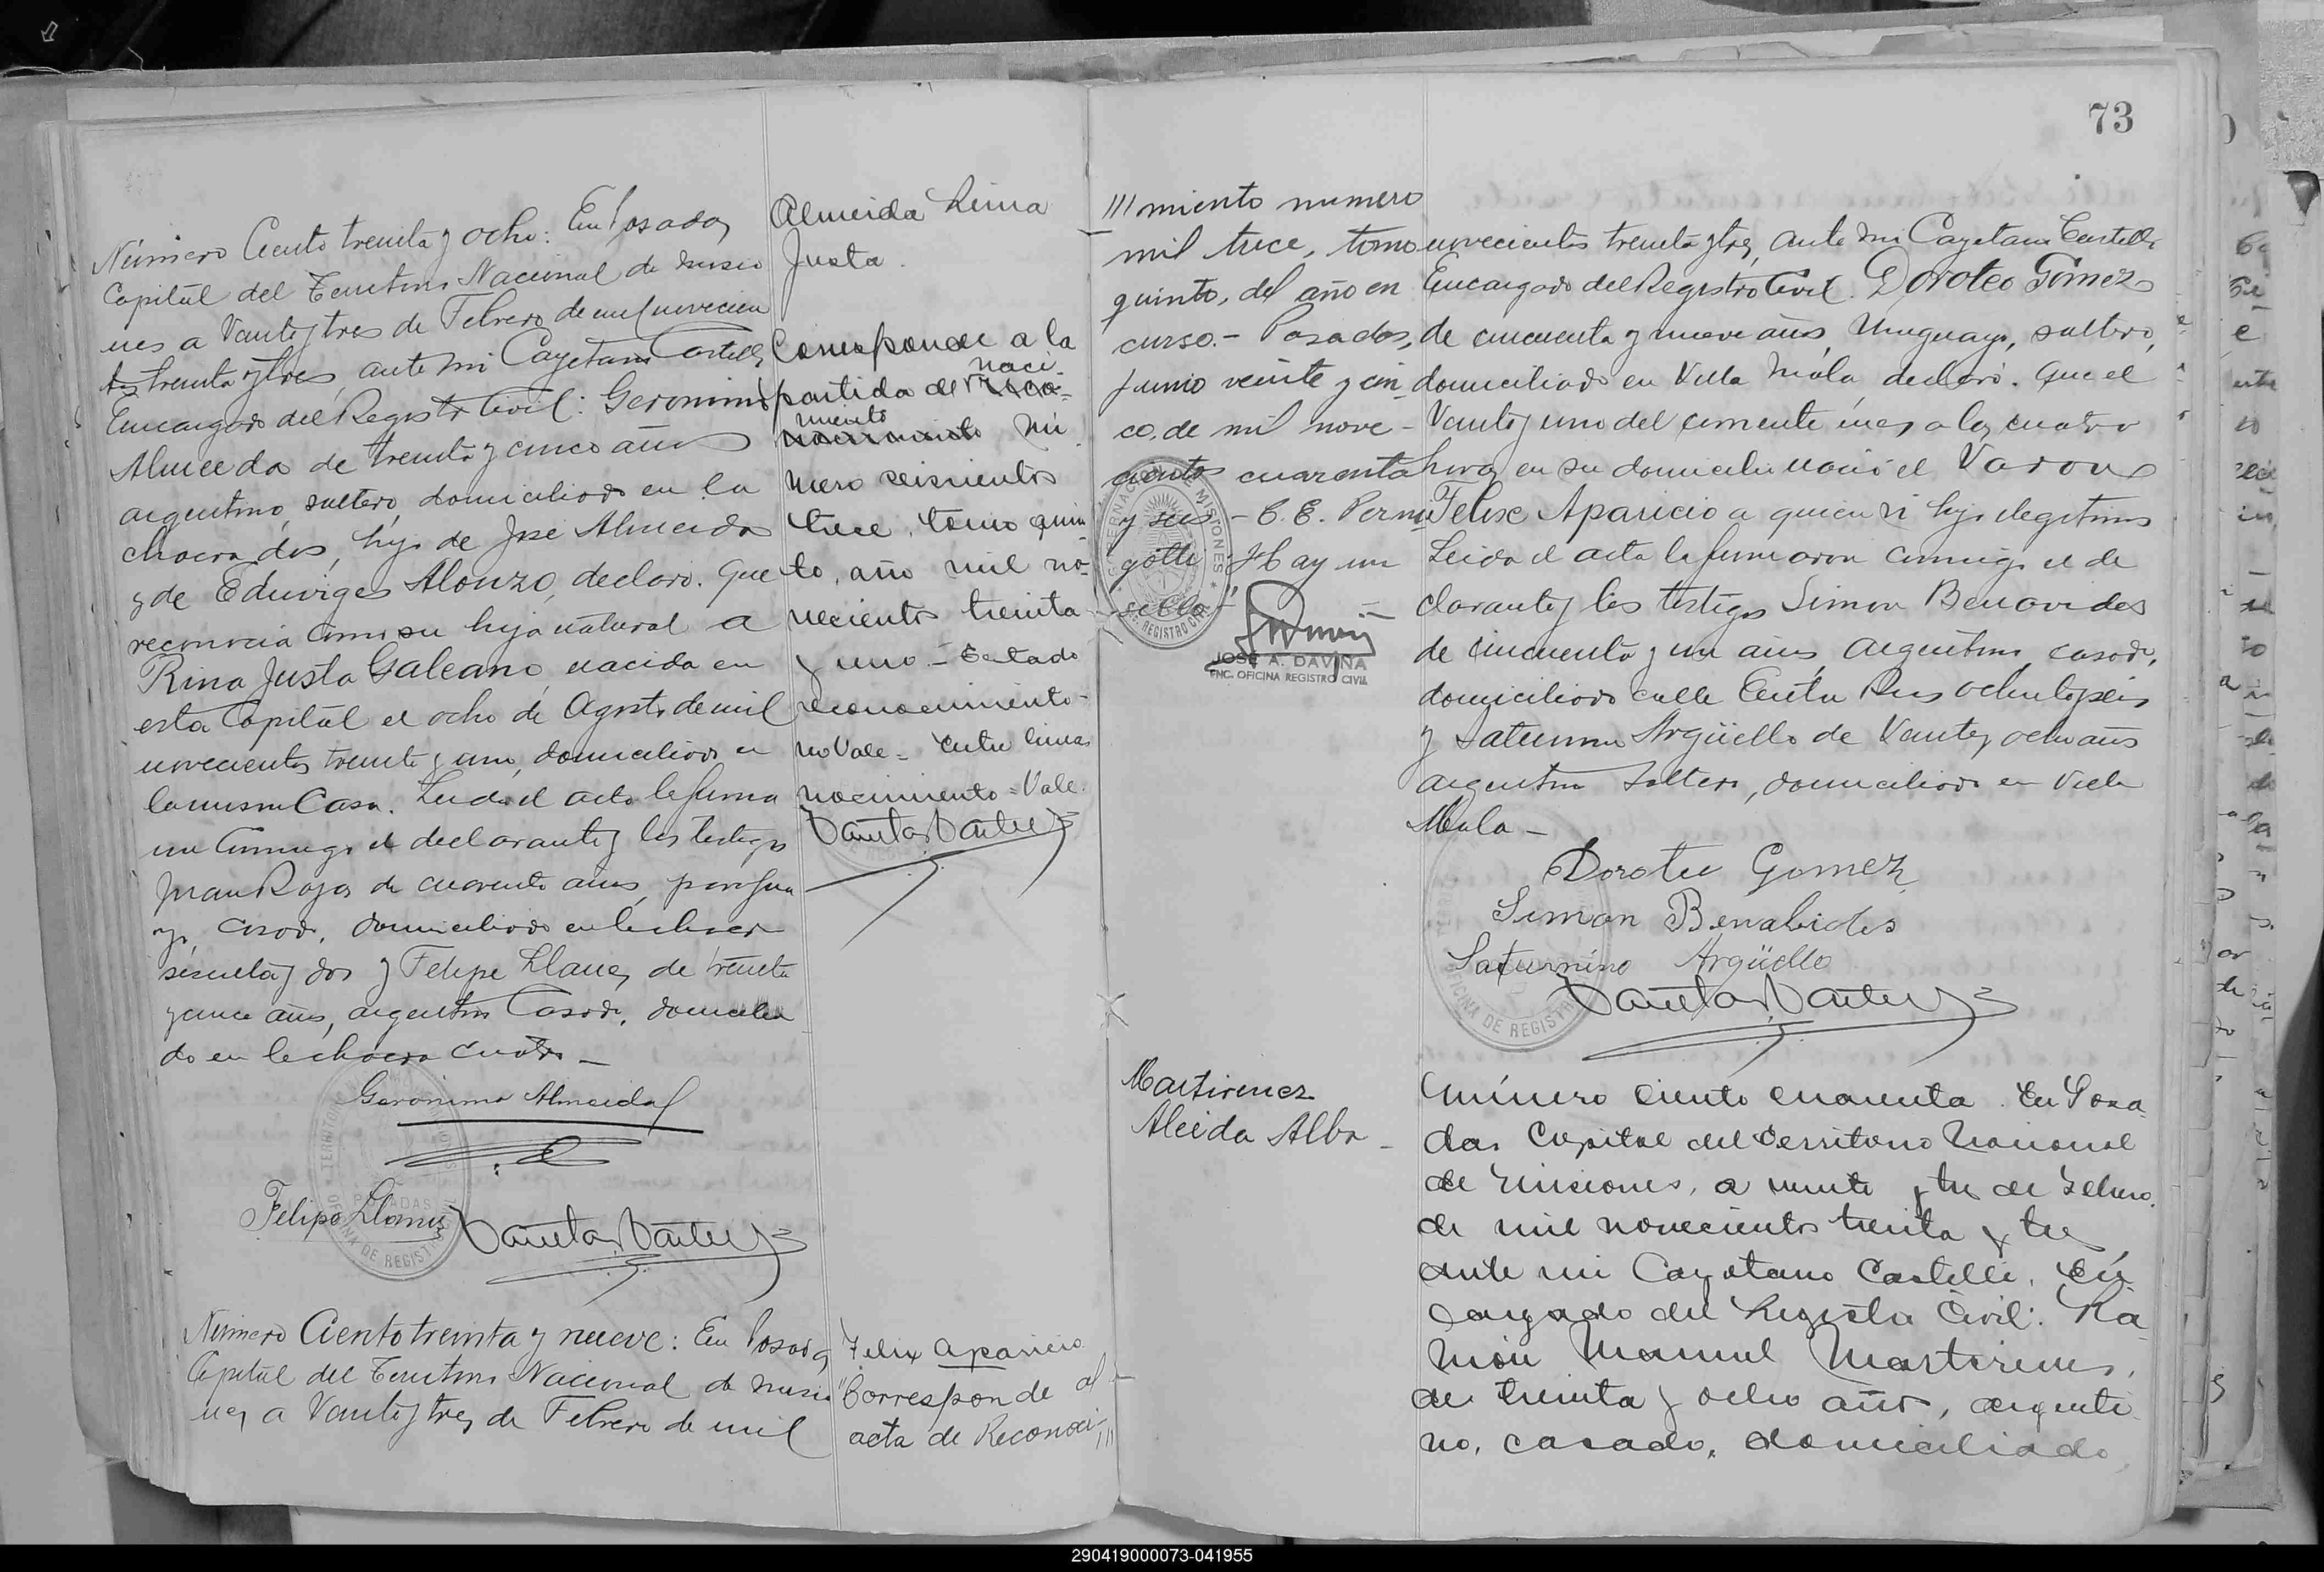 Número Ciento treinta y ocho: En Posadas
Capital del Territorio Nacional de Misio
nes a Veinte y tres de Febrero de mil novecien
tos treinta y tres, ante mi Cayetano Castelli
Encargado del Registro Civil: Geronimo
Almeida de treinta y cinco años
argentino, soltero, domiciliado en la
chacra dos, hijo de José Almeida
y de Eduviges Alonzo, declaró. Que
reconocia como su hija natural a
Rina Justa Galeano, nacida en
esta Capital el ocho de Agosto de mil
novecientos treinta y uno, domiciliado en
la misma Casa. Leida el acta la firma
on conmigo el declarante y los testigos
Juan Rojas de cuarenta años, paragua
yo, casado, domiciliado en la chacra
sesenta y dos y Felipe Llanes de treinta
y cinco años, argentino Casado, domicilia
do en la chacra cuatro —
Geronimo Almeida
Felipe Llanes
Número Ciento treinta y nueve: En Posadas
Capital del Territorio Nacional de Misio
nes a Veinte y tres de Febrero de mil
Almeida Rina
Justa.
Corresponde a la
naci-
partida de
miento
nacimiento Nú
mero seiscientos
trece, tomo quin
to, año mil no-
vecientos treinta
y uno - Testado
reconocimiento -
no Vale = Entre lineas
nacimiento = Vale.
Felix Aparicio
"Corresponde al
acta de Reconoci-///
73
/// miento numero
mil trece, tomo
quinto, del año en
curso. - Posadas,
Junio veinte y cin-
co, de mil nove-
cientos cuarenta
y seis - C. E. Perni
gotti - Hay un
sello -
JOSÉ A. DAVIÑA
ENC. OFICINA REGISTRO CIVIL
novecientos treinta y tres, ante mi Cayetano Castelli
Encargado del Registro Civil. Doroteo Gomez
de cincuenta y nueve años, Uruguayo, soltero,
domiciliado en Villa Mola, declaró. Que el
Veinte y uno del corriente mes a las cuatro
horas en su domicilio nació el Varon
Felix Aparicio a quien vi hijo ilegitimo
Leida el acta la firmaron conmigo el de
clarante y los testigos Simon Benavides
de cincuenta y un años, argentino, casado,
domiciliado calle Entre Rios ochenta y seis
y Saturnino Argüello de Veinte y ocho años
argentino soltero, domiciliado en Villa
Mola —
Doroteo Gomez
Simon Benabides
Saturnino Argüello
Martirenez
Aleida Alba -
Número ciento cuarenta. En Posa
das Capital del Territorio Nacional
de Misiones, a veinte y tres de Febrero
de mil novecientos treinta y tres,
ante mi Cayetano Castelli, En
cargado del Registro Civil: Ra
món Manuel Martirenes,
de treinta y ocho años, argenti
no, casado, domiciliado
290419000073-041955